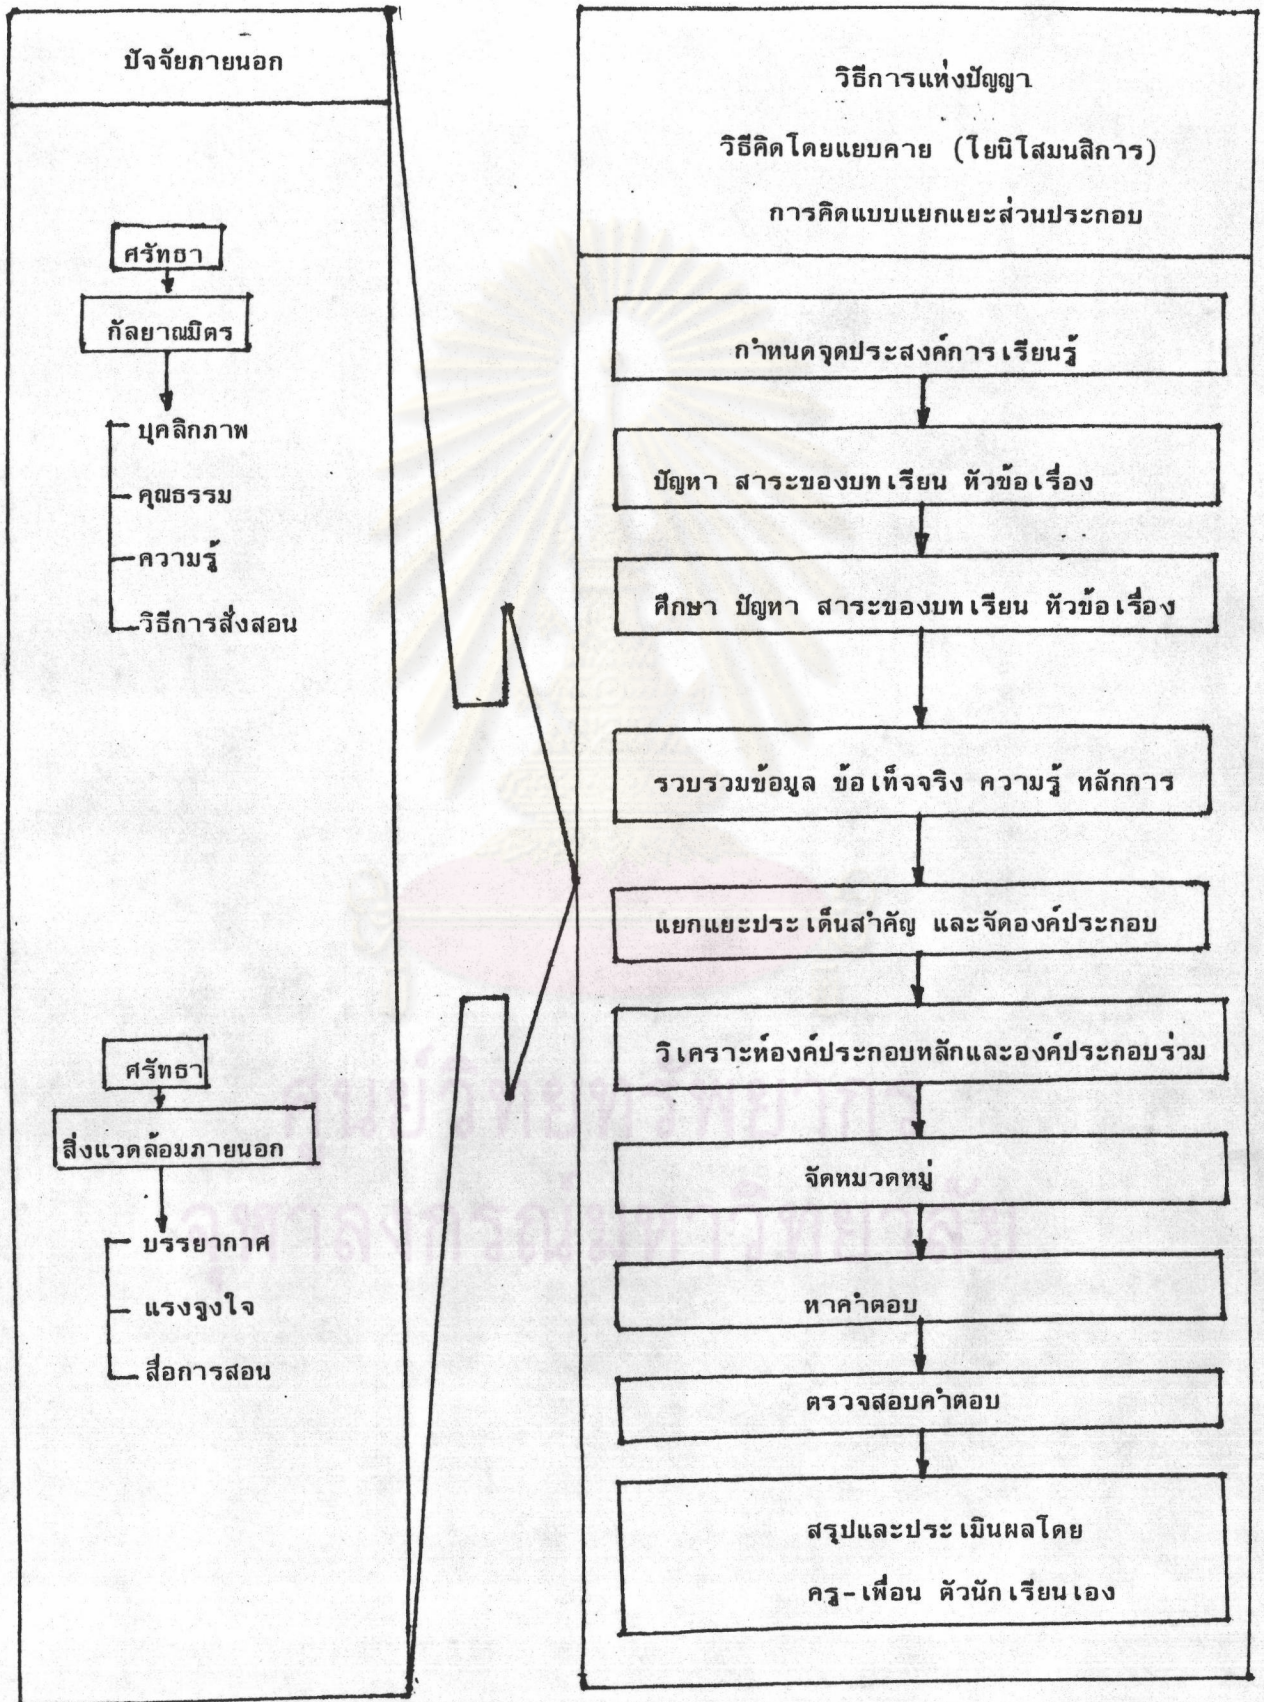 ปัจจัยภายนอก
ศรัทธา
กัลยาณมิตร
บุคลิกภาพ
คุณธรรม
ความรู้
วิธีการสั่งสอน
ศรัทธา
สิ่งแวดล้อมภายนอก
บรรยากาศ
แรงจูงใจ
สื่อการสอน
วิธีการแห่งปัญญา
วิธีคิดโดยแยบคาย (โยนิโสมนสิการ)
การคิดแบบแยกแยะส่วนประกอบ
กำหนดจุดประสงค์การเรียนรู้
ปัญหา สาระของบทเรียน หัวข้อเรื่อง
ศึกษา ปัญหา สาระของบทเรียน หัวข้อเรื่อง
รวบรวมข้อมูล ข้อเท็จจริง ความรู้ หลักการ
แยกแยะประเด็นสำคัญ และจัดองค์ประกอบ
วิเคราะห์องค์ประกอบหลักและองค์ประกอบร่วม
จัดหมวดหมู่
หาคำตอบ
ตรวจสอบคำตอบ
สรุปและประเมินผลโดย
ครู-เพื่อน ตัวนักเรียนเอง
ศูนย์วิทยทรัพยากร
จุฬาลงกรณ์มหาวิทยาลัย